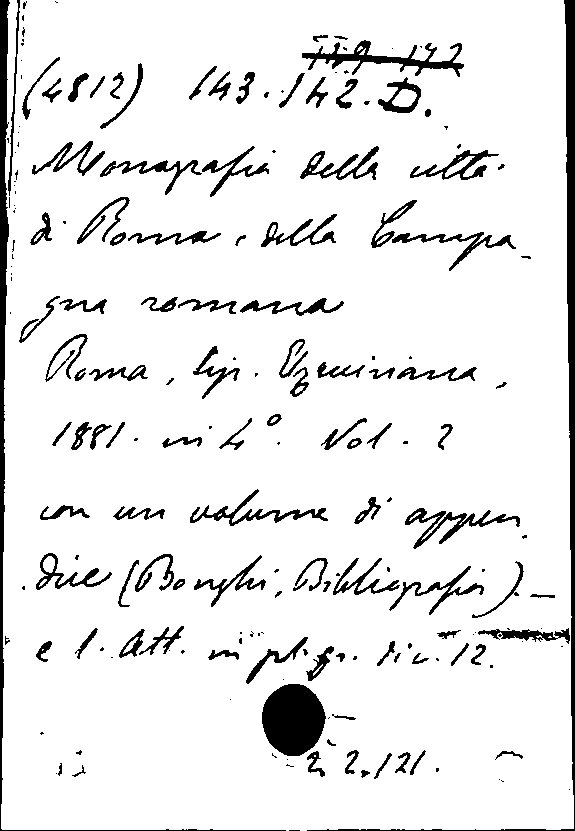 (4812) 143.142.D.
Monografia della città
di Roma e della Campa-
gna romana
Roma, tip. Elzeviriana,
1881. in 4°. Vol. 2
con un volume di appen
dice (Bonghi, Bibliografia). —
e 1. Att. in pl. gr. div. 12.
2. 2. 121.